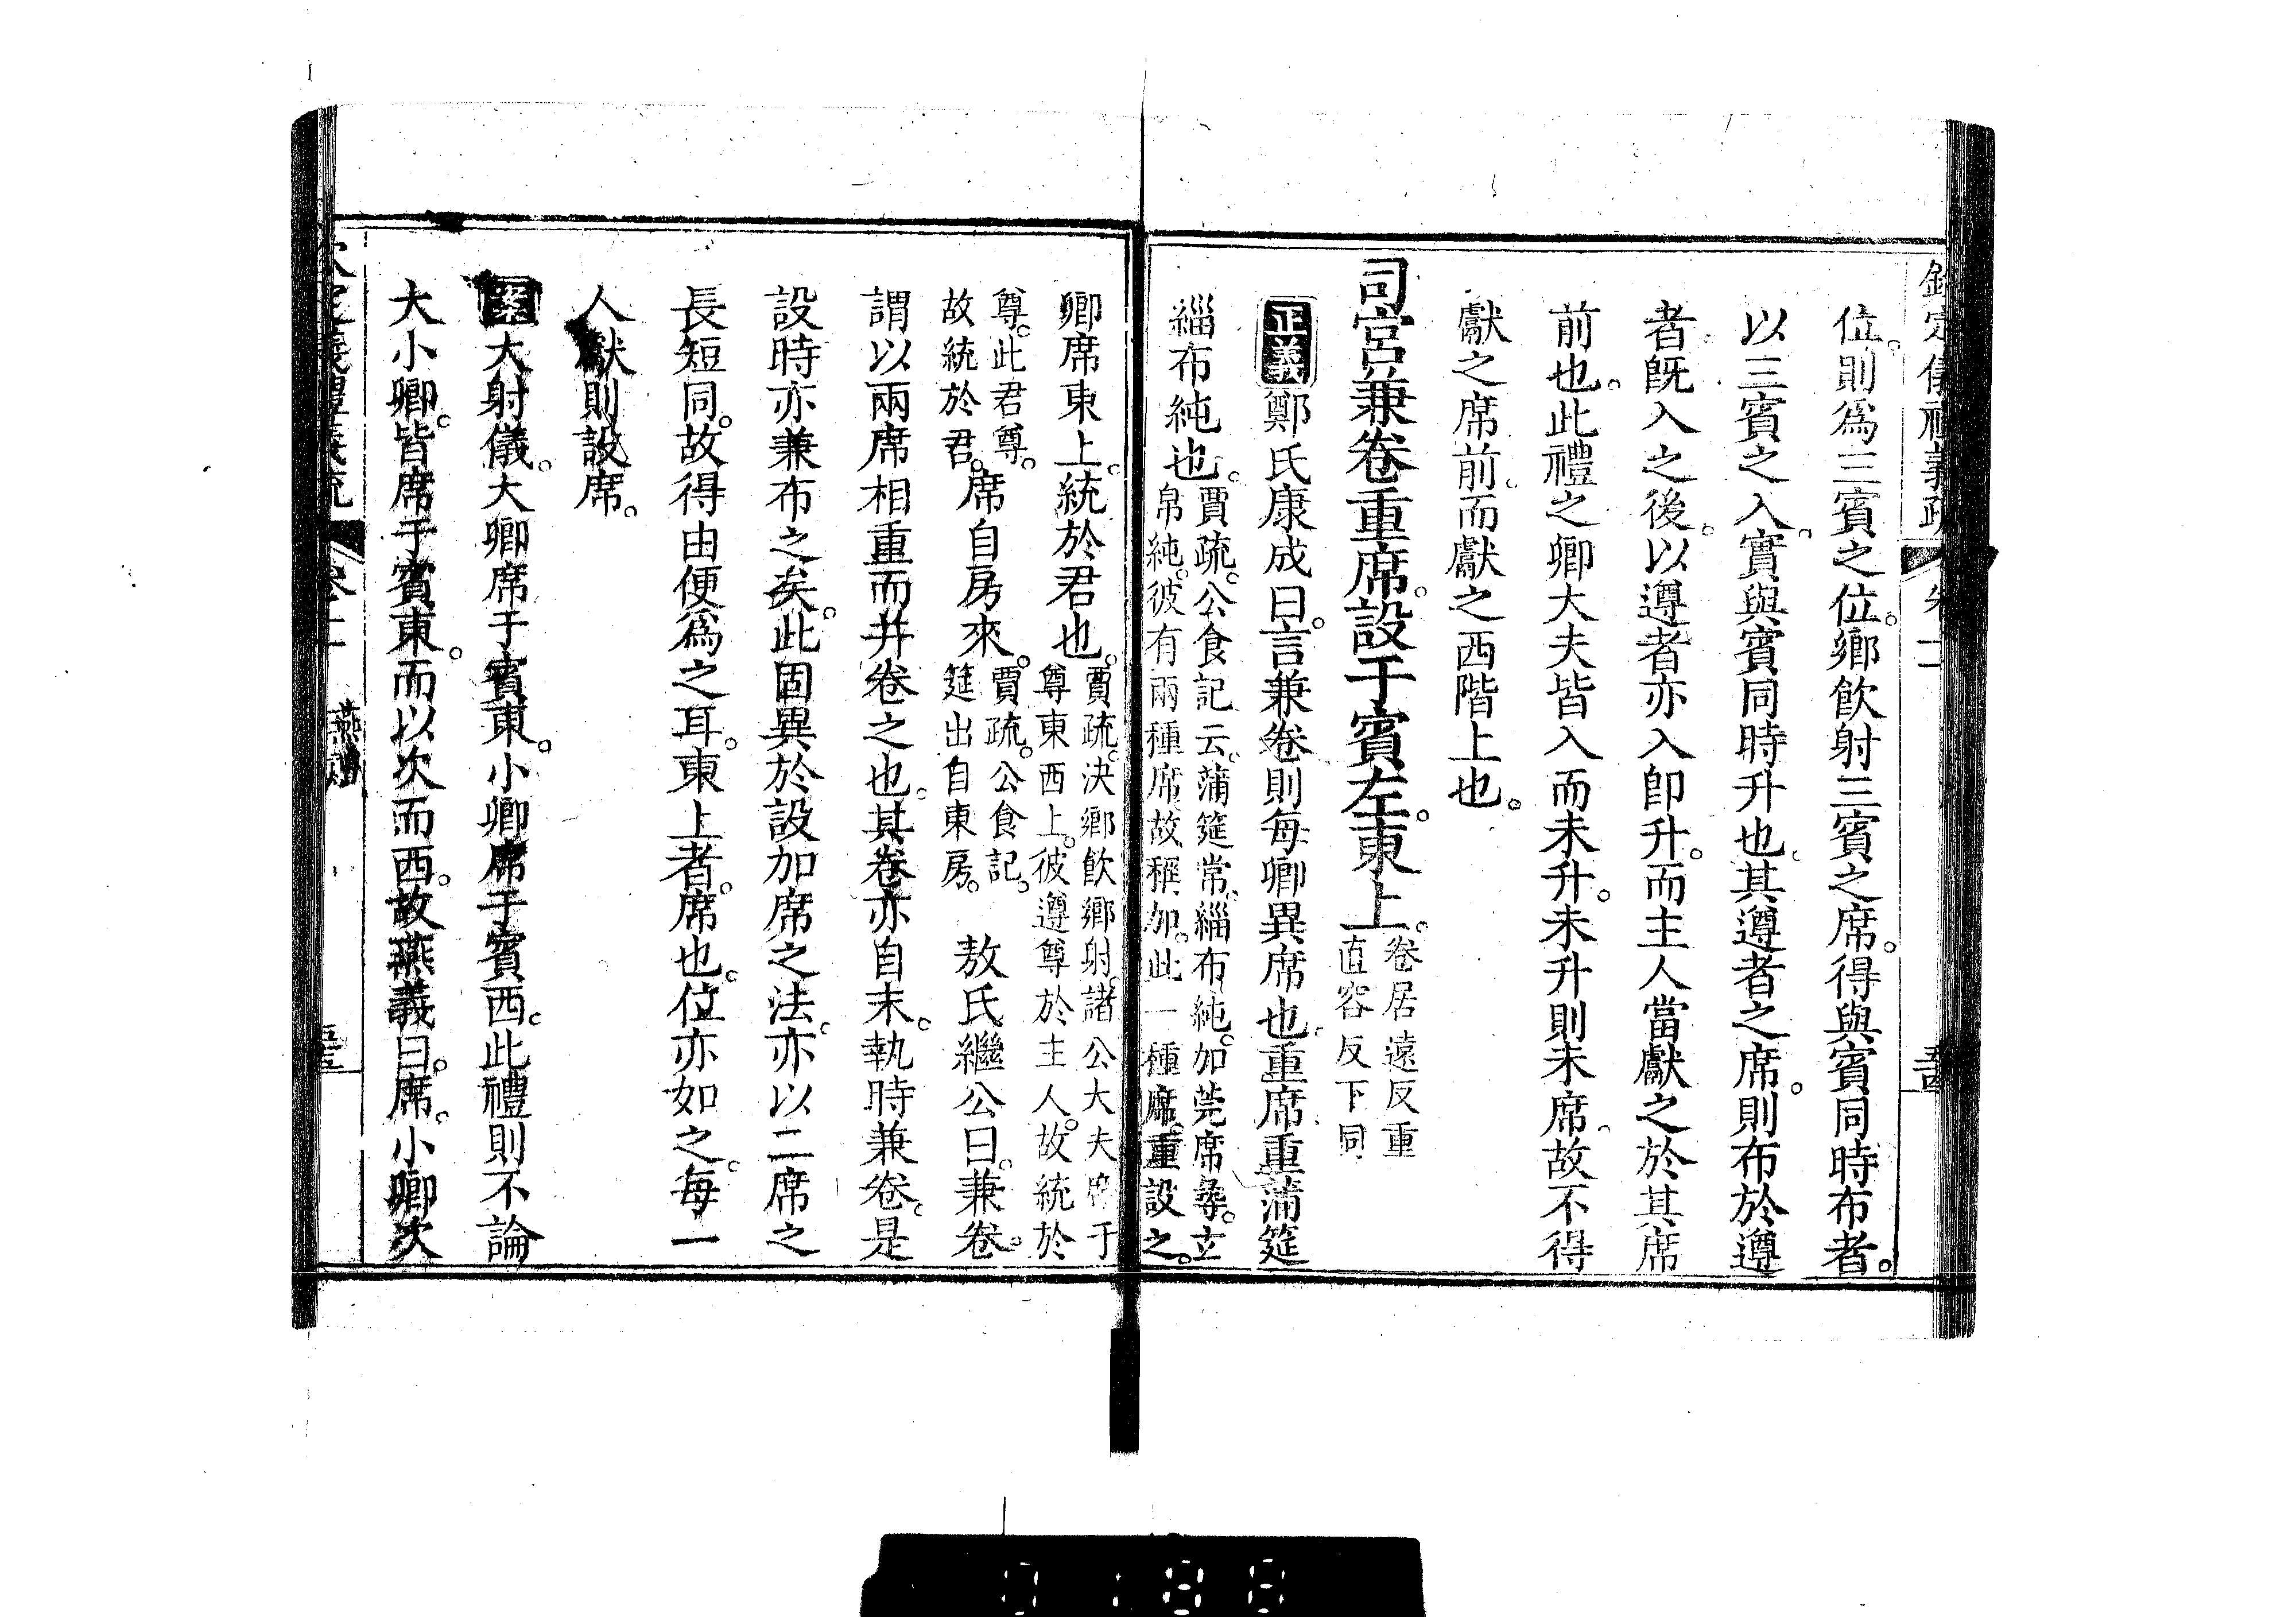 位。則爲三賓之位。鄉飲射三賓之席。得與賓同時布者。
以三賓之入。實與賓同時升也。其遵者之席。則布於遵
者旣入之後。以遵者亦入卽升。而主人當獻之於其席
前也。此禮之卿大夫皆入而未升。未升則未席。故不得
獻之席前。而獻之西階上也。
司宮兼卷重席。設于賓左。東上。卷居遠反重
直容反下同
正義鄭氏康成曰。言兼卷則每卿異席也。重席重蒲筵
緇布純也。賈疏。公食記云。蒲筵常。緇布純。加莞席尋。玄
帛純。彼有兩種席。故稱加。此一種席。重設之。
卿席東上。統於君也。賈疏。決鄉飲鄉射。諸公大夫席于
尊東西上。彼遵尊於主人。故統於
尊。此君尊。
故統於君。席自房來。賈疏。公食記。
筵出自東房。敖氏繼公曰。兼卷。
謂以兩席相重而幷卷之也。其卷亦自末。執時兼卷。是
設時亦兼布之矣。此固異於設加席之法。亦以二席之
長短同。故得由便爲之耳。東上者。席也。位亦如之。每一
人獻則設席。
案大射儀。大卿席于賓東。小卿席于賓西。此禮則不論
大小卿。皆席于賓東。而以次而西。故燕義曰。席。小卿次
燕禮